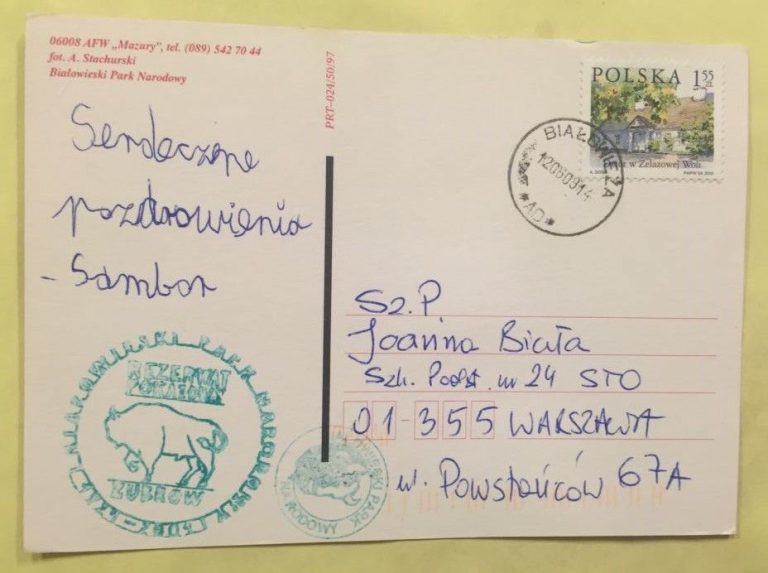 06008 AFW „Mazury”, tel. (089) 542 70 44
fot. A. Stachurski
Białowieski Park Narodowy
PRT-024/50/97
Serdeczne
pozdrowienia
- Sambor
POLSKA 1 55 zł
Dwór w Żelazowej Woli
BIAŁOWIEŻA
120609 14
*AD*
Sz. P.
Joanna Biała
Szk. Podst. nr 24 STO
01-355 WARSZAWA
ul. Powstańców 67A
REZERWAT
POKAZOWY
ŻUBRÓW